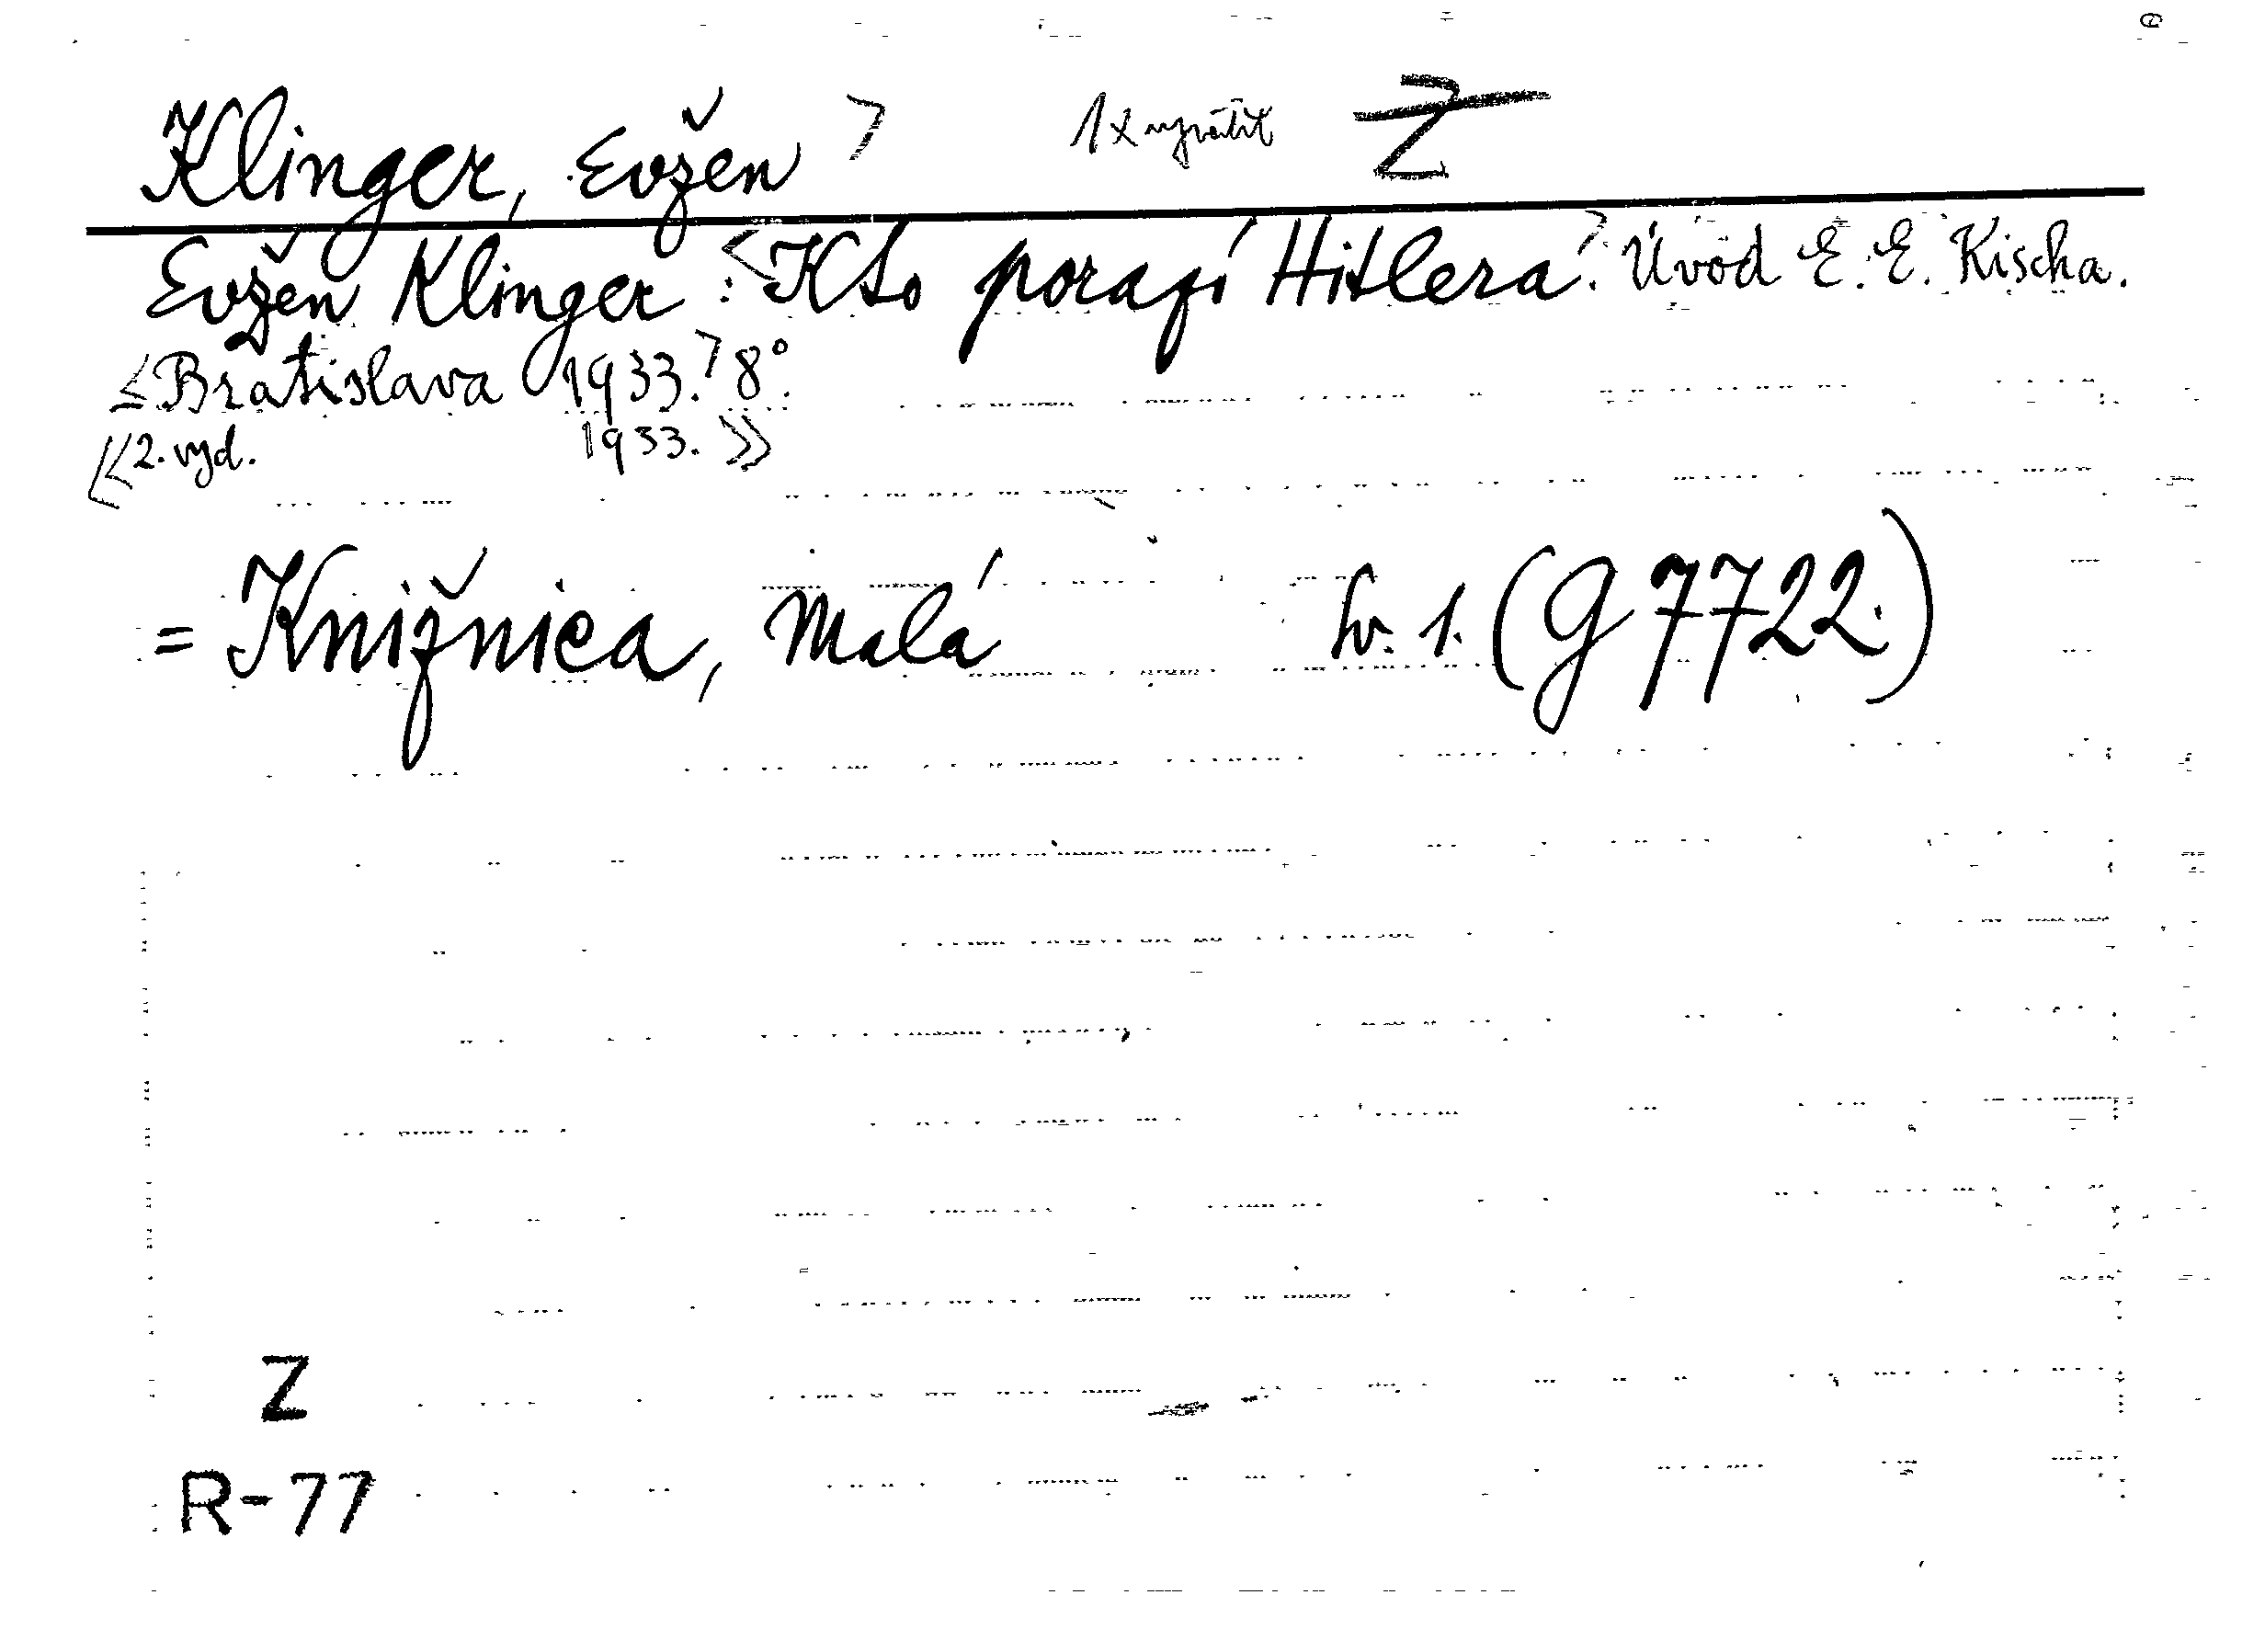 Klinger, Evžen > 1x vyvětit Z
Evžen Klinger: <Kto porazí Hitlera>. Úvod E. E. Kischa.
<Bratislava 1933.> 8°.
<<2. vyd. 1933.>>
= Knižnica, Malá sv. 1. (G 7722.)
Z
R-77